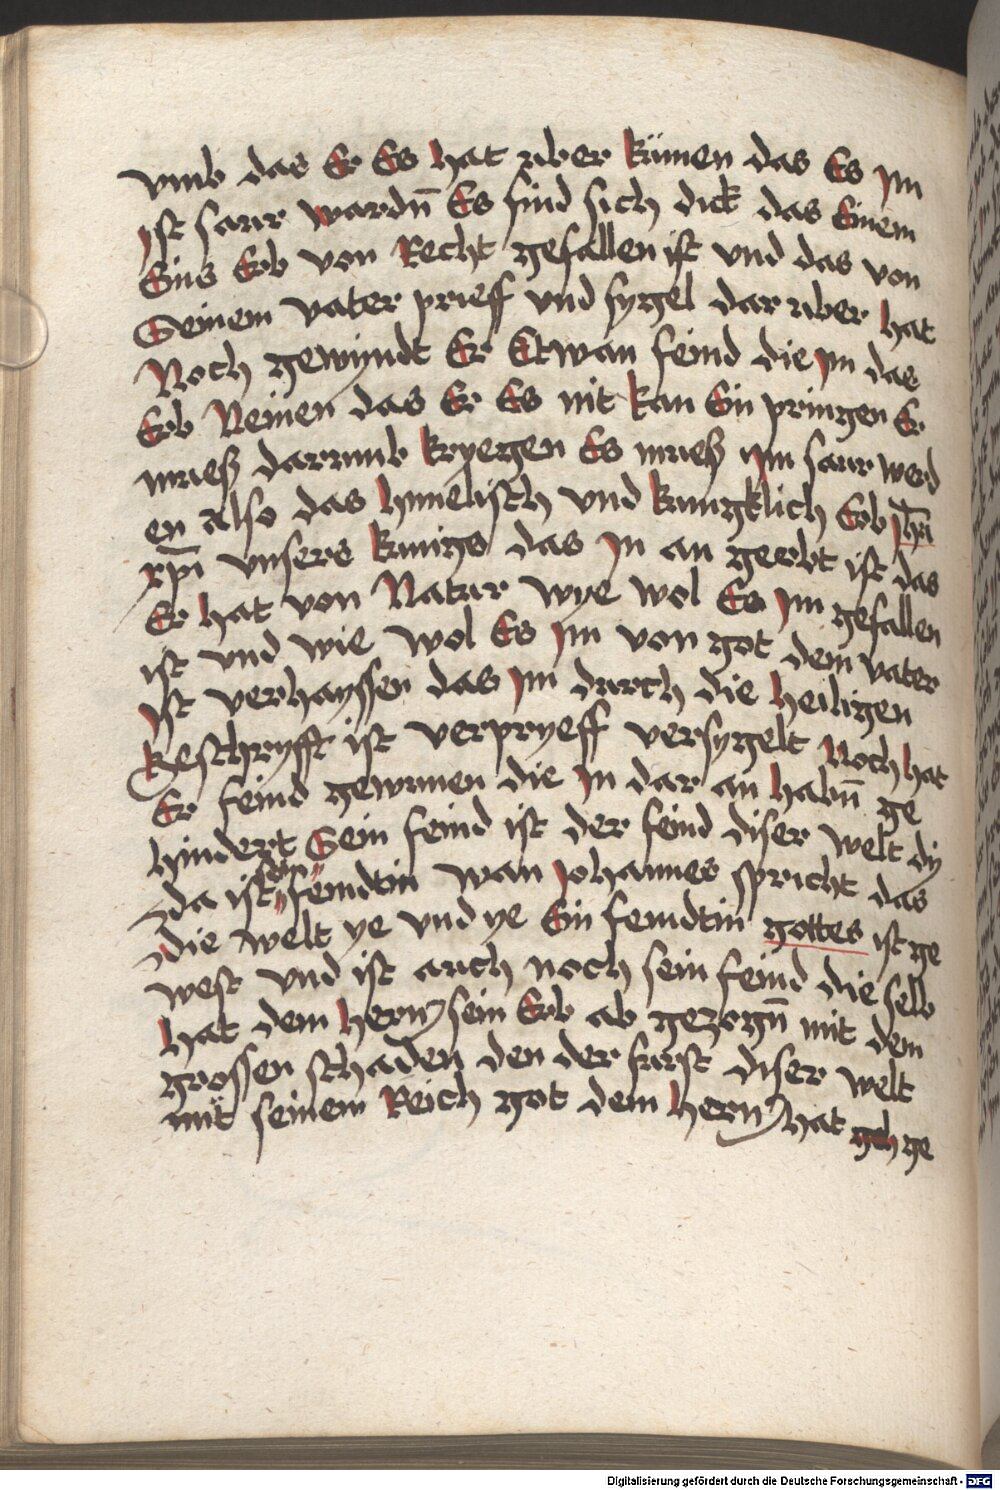 vmb das Er Es hat uber kumen das Es Im
Ist saur wardn̄ Es find sich dick das Einem
Eins Erb von Recht gefallen ist vnd das von
Seinem vater prieff vnd sygel dar uber hat
Noch gewyndt Er Etwan feind die Im das
Erb Nemen das Er Es nit kan Ein pringen Er
mueß darumb kryegen Es mueß Im saur werd
en also das himelisch vnd kungklich Erb ihū
xpī vnsers kunigs das In an gerbt ist das
Er hat von Natur wye wol Es Im gefallen
ist vnd wie wol Es Im von got dem vater
Ist verhayssen das Im durch die heiligen
Geschryfft ist verpryeff versygelt Noch hat
Er feind gewunen die In dar an habn̄ ge
hindert Sein feind ist der feind diser welt dy
da ist sein feindtin wan Johannes spricht das
die welt ye vnd ye Ein feindtin gottes ist ge
west vnd ist auch noch sein feind die selb
hat dem hern sein Erb ab gezogn̄ mit dem
grossen schaden den der furst diser welt
mit seinem Reich got dem hern hat geh ge
Digitalisierung gefördert durch die Deutsche Forschungsgemeinschaft - DFG